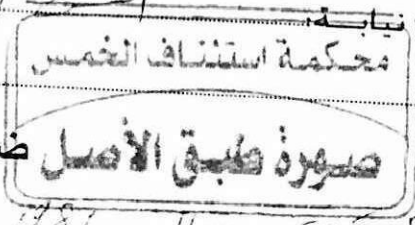 نيابة:
محكمة استئناف الخمس
صورة طبق الأصل